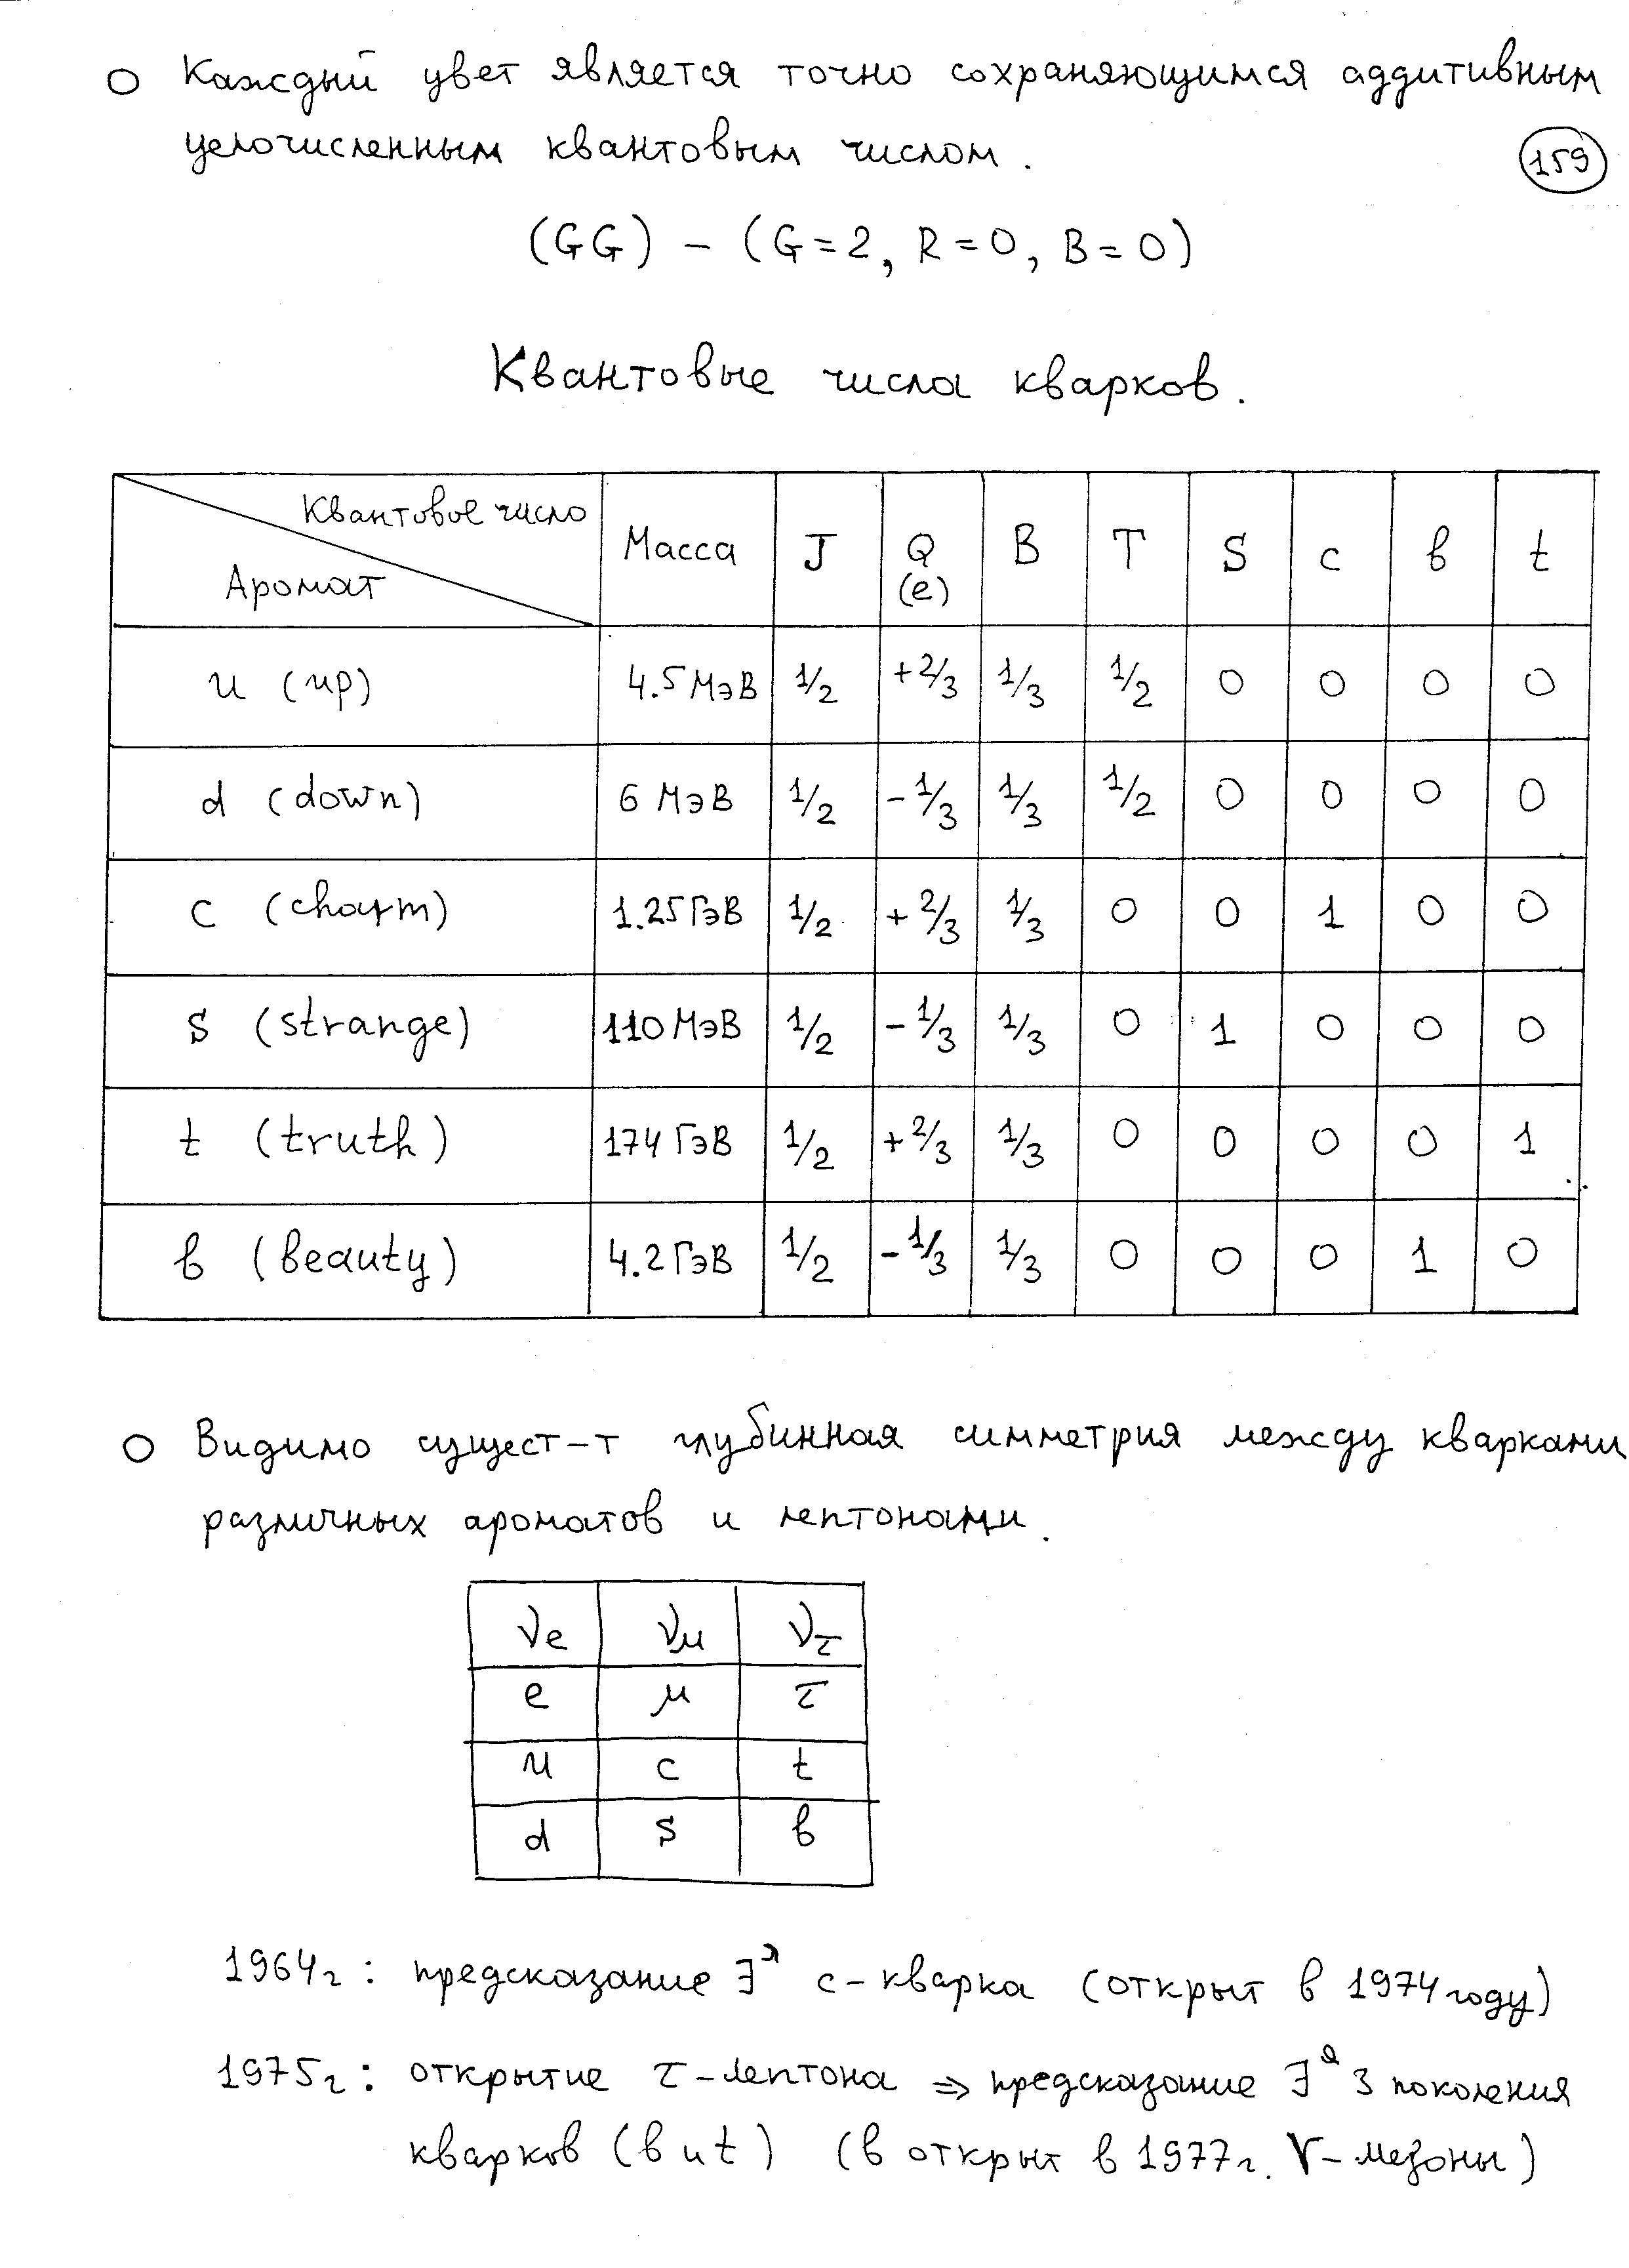 ○ Каждый цвет является точно сохраняющимся аддитивным
целочисленным квантовым числом.
159
(GG) – (G=2, R=0, B=0)
Квантовые числа кварков.
Квантовое число
Аромат
Масса J Q (e) B T S c b t
u (up) 4.5 МэВ 1/2 +2/3 1/3 1/2 0 0 0 0
d (down) 6 МэВ 1/2 -1/3 1/3 1/2 0 0 0 0
c (charm) 1.25 ГэВ 1/2 +2/3 1/3 0 0 1 0 0
s (strange) 110 МэВ 1/2 -1/3 1/3 0 1 0 0 0
t (truth) 174 ГэВ 1/2 +2/3 1/3 0 0 0 0 1
b (beauty) 4.2 ГэВ 1/2 -1/3 1/3 0 0 0 1 0
○ Видимо сущест-т глубинная симметрия между кварками
различных ароматов и лептонами.
νe νμ ντ
e μ τ
u c t
d s b
1964г: предсказание ∃я c-кварка (открыт в 1974 году)
1975г: открытие τ-лептона ⇒ предсказание ∃я 3 поколения
кварков (b и t) (b открыт в 1977г. ϒ-мезоны)